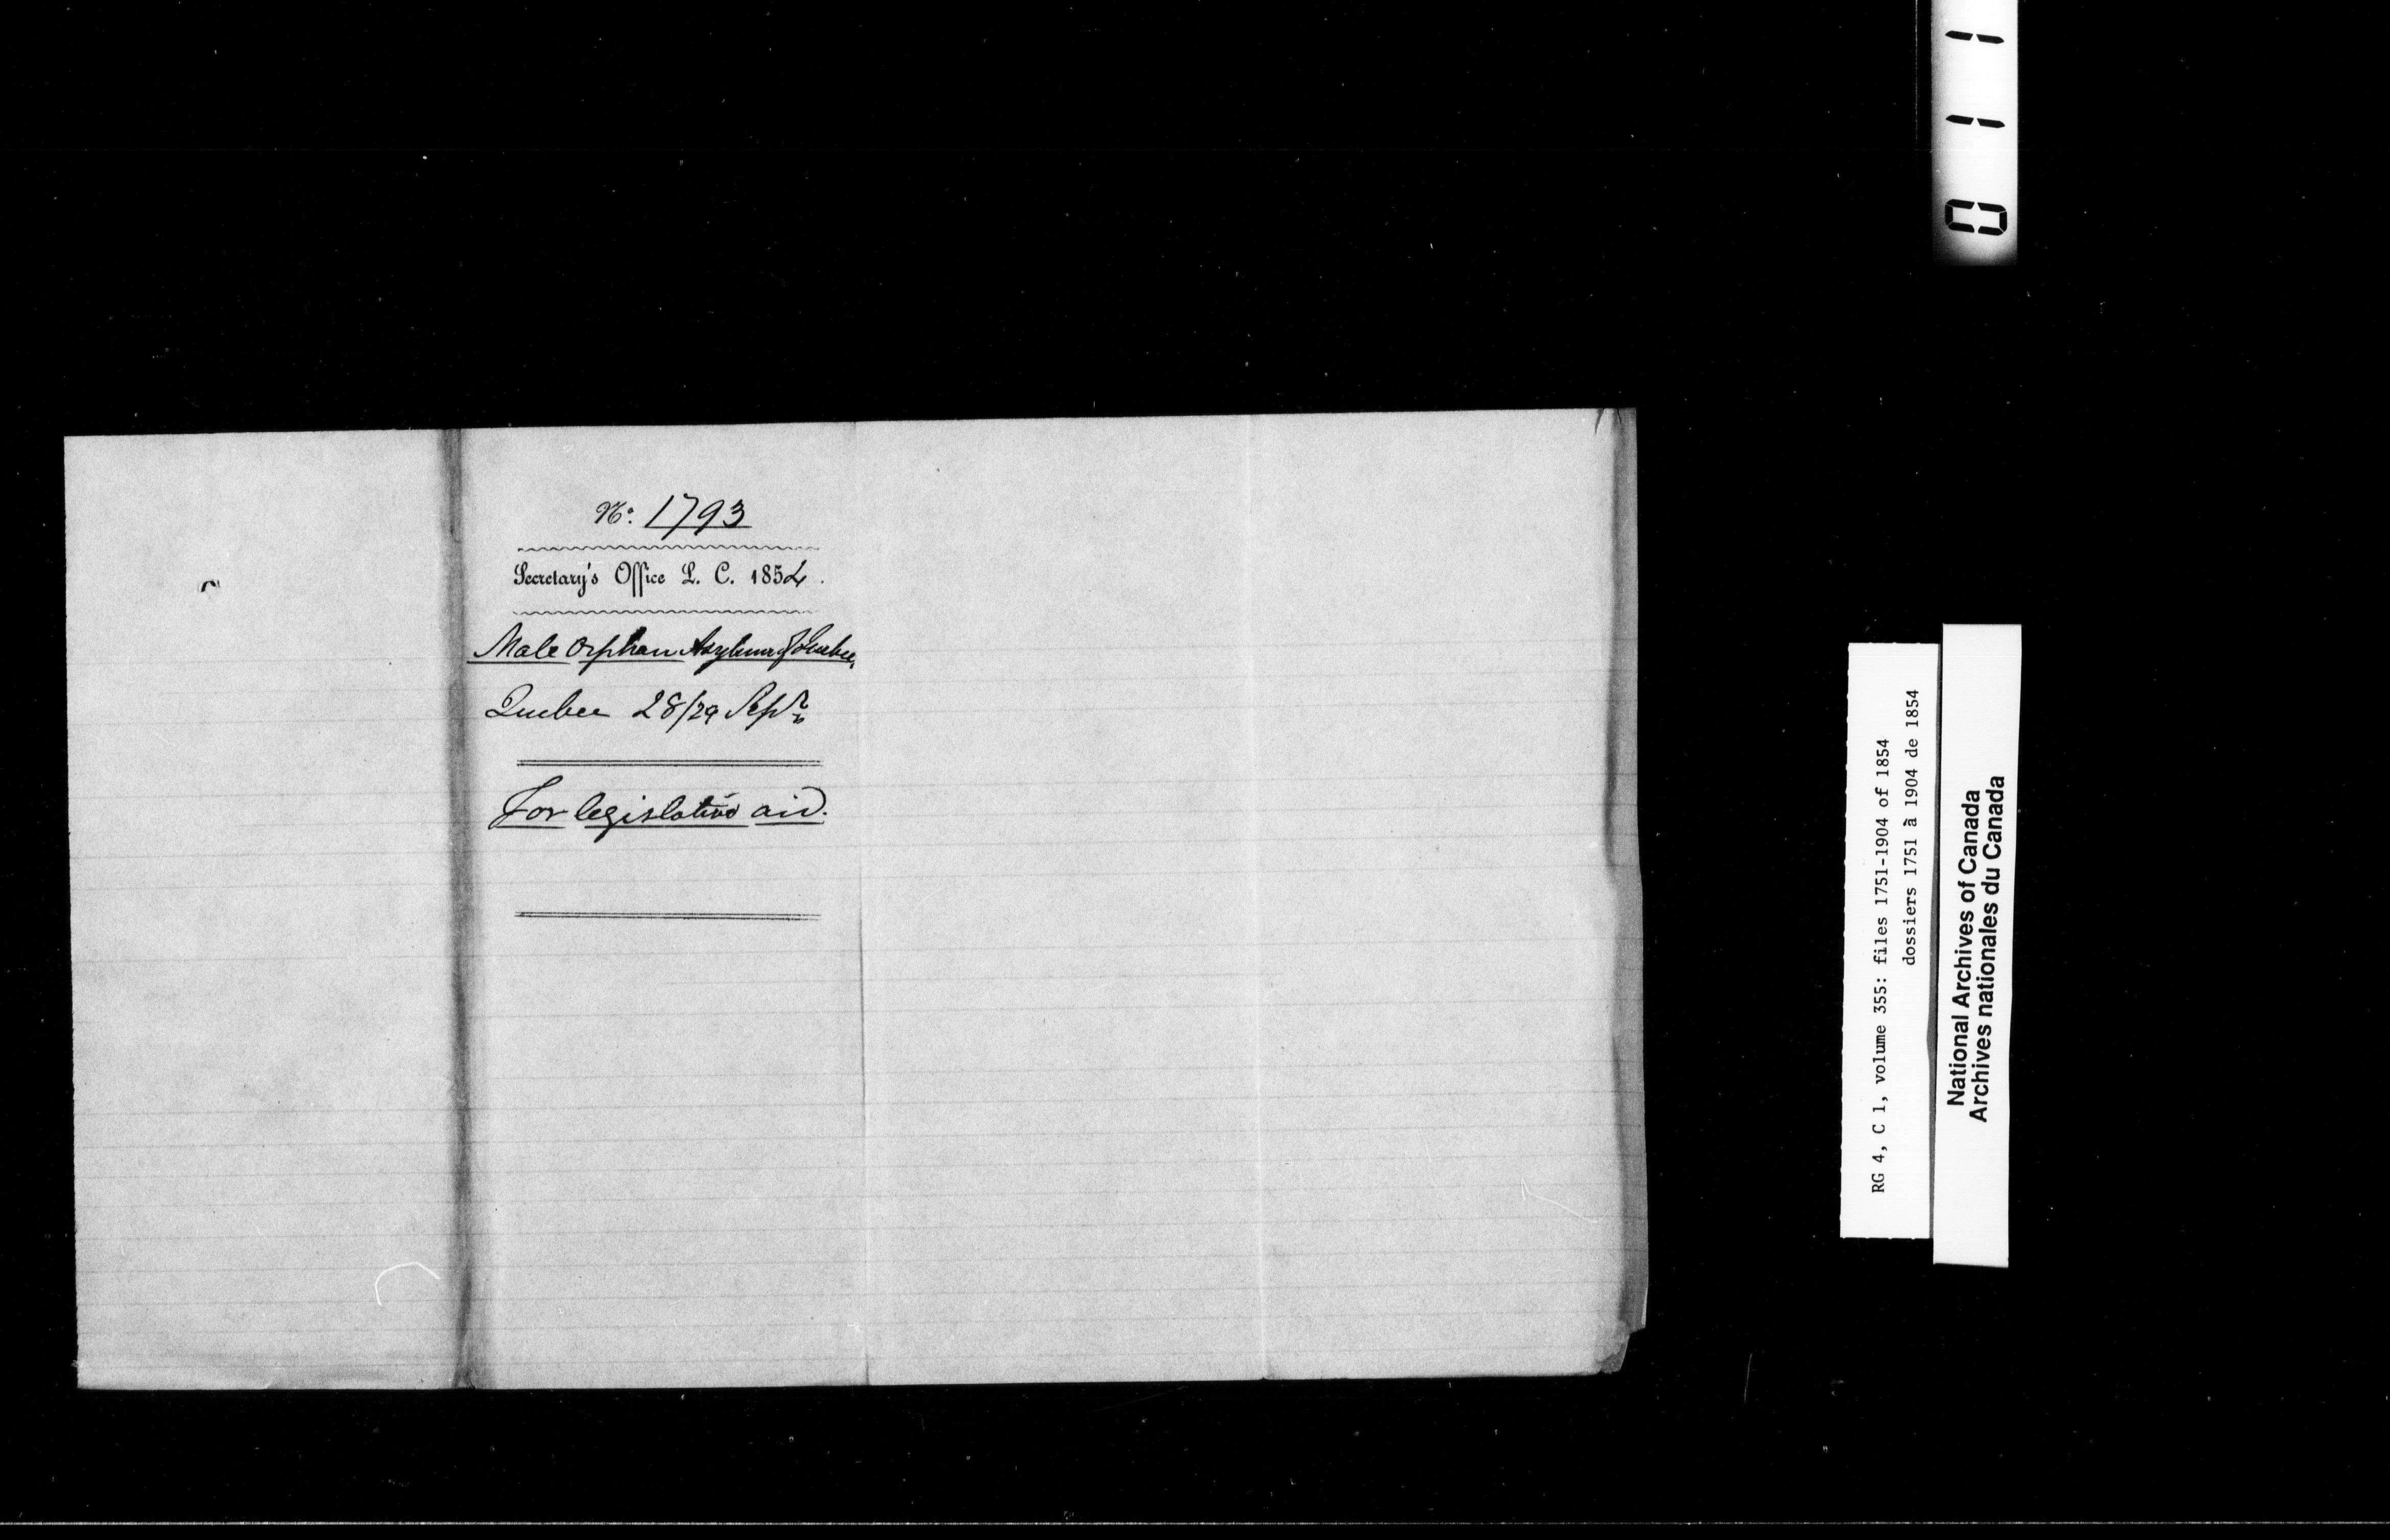 No. 1793
Secretary's Office L. C. 1854.
Male Orphan Asylum of Quebec,
Quebec 28/29 Sept.
For legislative aid.
0 1 1
RG 4, C 1, volume 355: files 1751-1904 of 1854
dossiers 1751 à 1904 de 1854
National Archives of Canada
Archives nationales du Canada